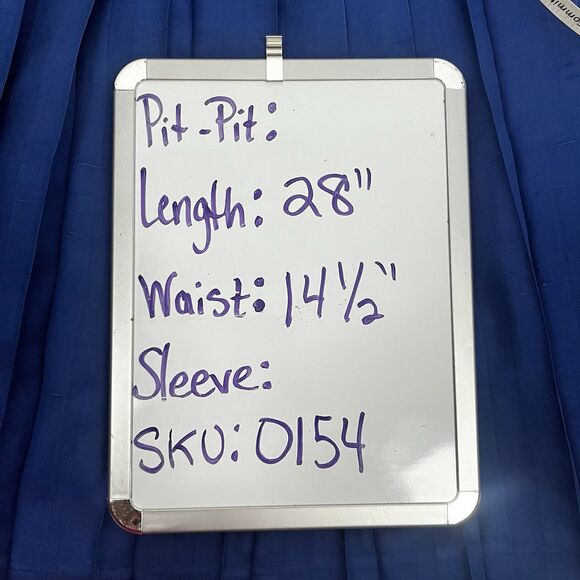 Pit-Pit:
Length: 28"
Waist: 14 1/2"
Sleeve:
SKU: 0154